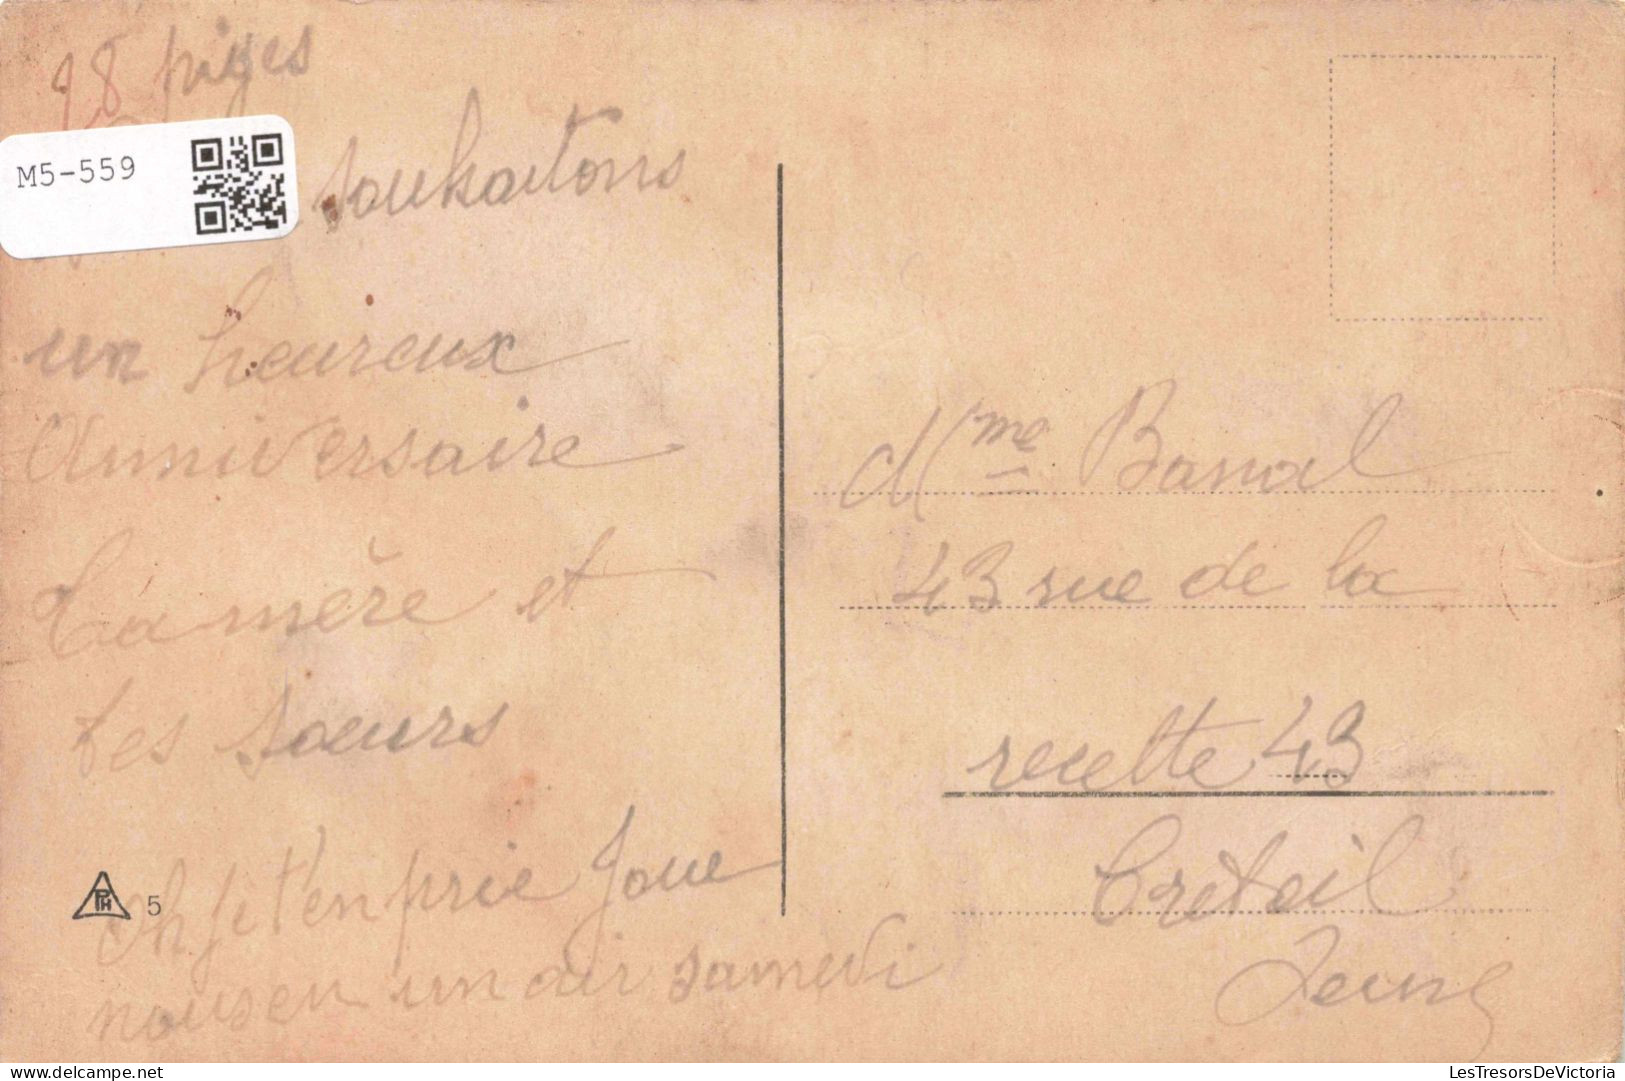 18 piges
M5-559
souhaitons
un heureux
Anniversaire
Ta mère et
tes sœurs
Oh je t'en prie Joue
nous en un air samedi
PH 5
Mme Banal
43 rue de la
recette 43
Creteil
Seine
LesTresorsDeVictoria